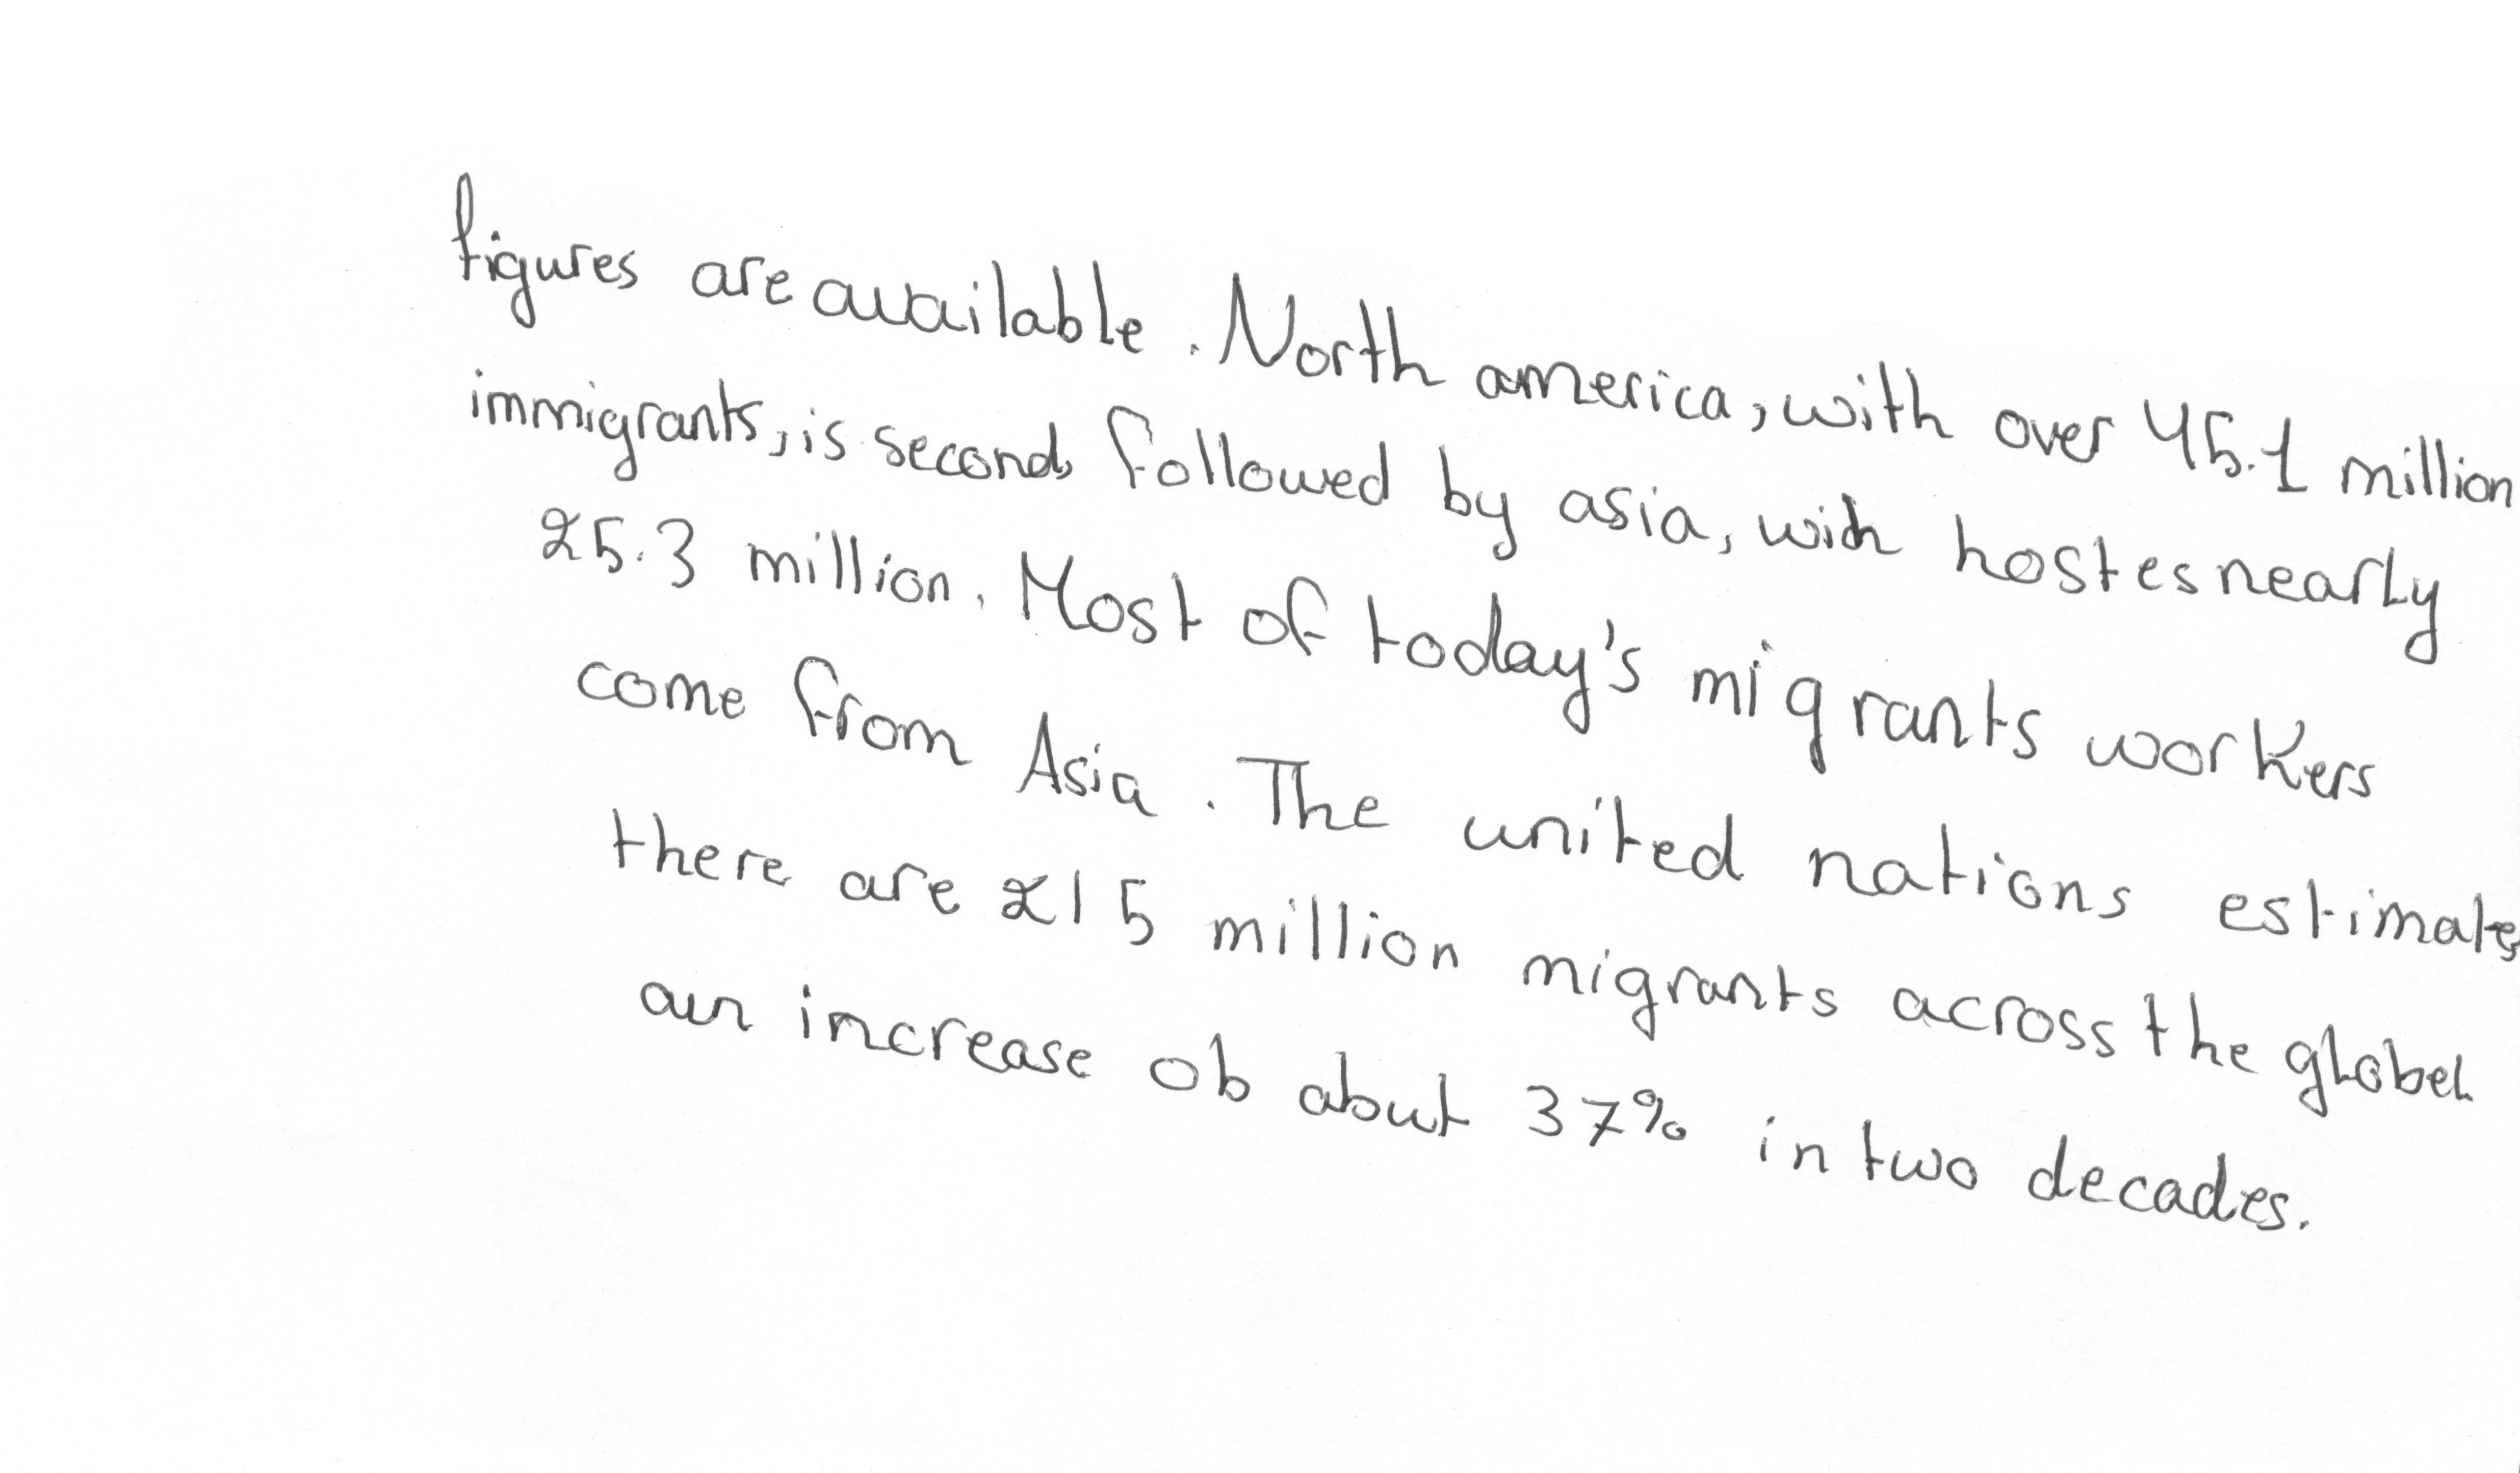 figures are available. North america, with over 45.1 million
immigrants, is second, followed by asia, with hostes nearly
25.3 million. Most of today's migrants workers
come from Asia. The united nations estimates
there are 215 million migrants across the globel
an increase ob about 37% in two decades.